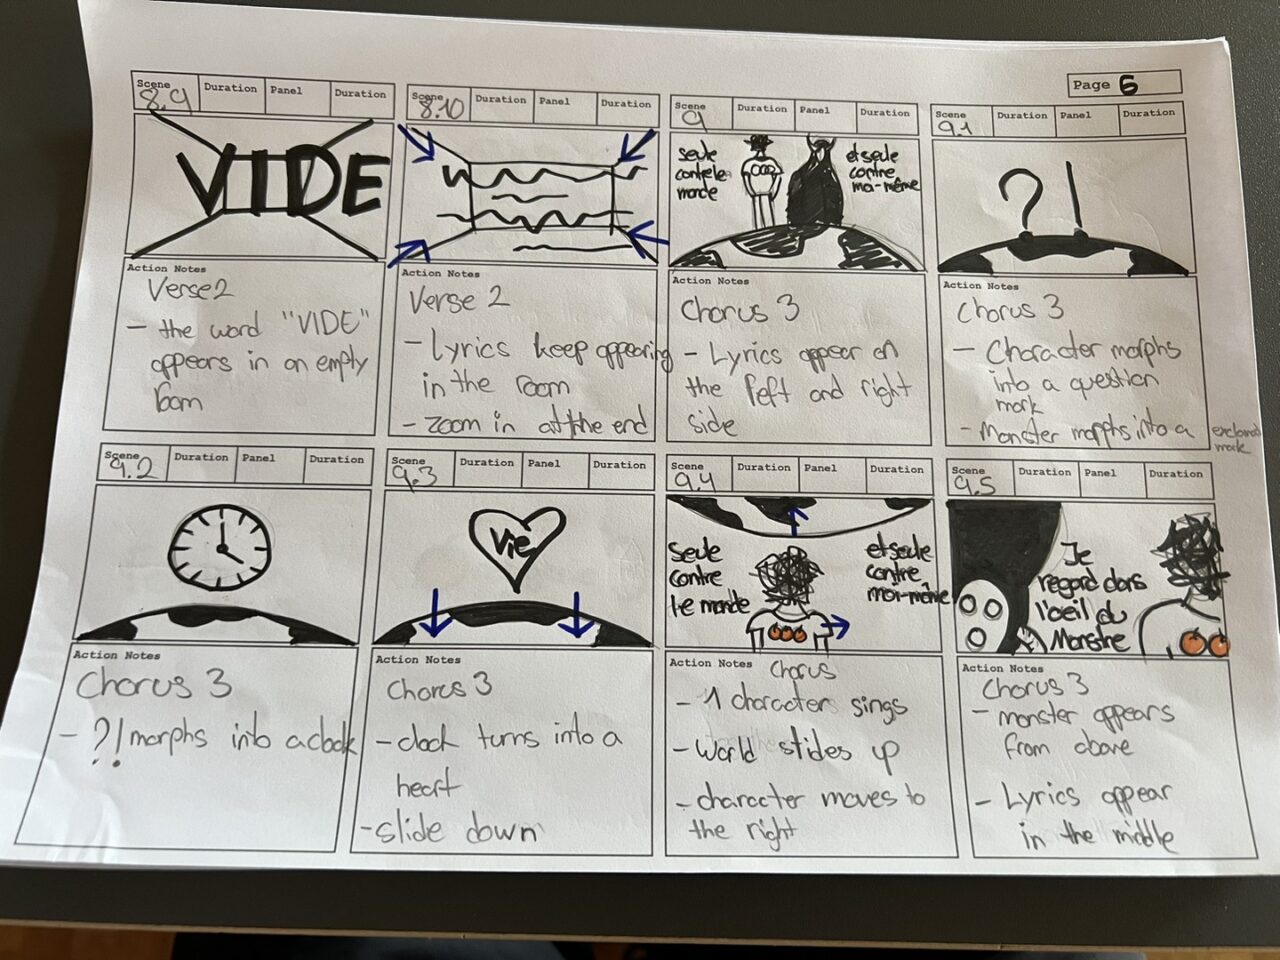 Page 6
Scene Duration Panel Duration
8.9
VIDE
Action Notes
Verse 2
- the word "VIDE"
appears in an empty
room
Scene Duration Panel Duration
8.10
Action Notes
Verse 2
- Lyrics keep appearing
in the room
- zoom in at the end
Scene Duration Panel Duration
9
seule
contre le
monde
et seule
contre
moi-même
Action Notes
Chorus 3
- Lyrics appear on
the left and right
side
Scene Duration Panel Duration
9.1
?!
Action Notes
Chorus 3
- Character morphs
into a question
mark
- Monster morphs into a
mark
Scene Duration Panel Duration
9.2
Action Notes
Chorus 3
- ?! morphs into a clock
Scene Duration Panel Duration
9.3
Vie
Action Notes
Chorus 3
- clock turns into a
heart
- slide down
Scene Duration Panel Duration
9.4
Seule
contre
le monde
et seule
contre
moi-même
Action Notes
Chorus
- 1 character sings
- World slides up
- character moves to
the right
Scene Duration Panel Duration
9.5
Je
regard dans
l'oeil du
Monstre
Action Notes
Chorus 3
- monster appears
from above
- Lyrics appear
in the middle